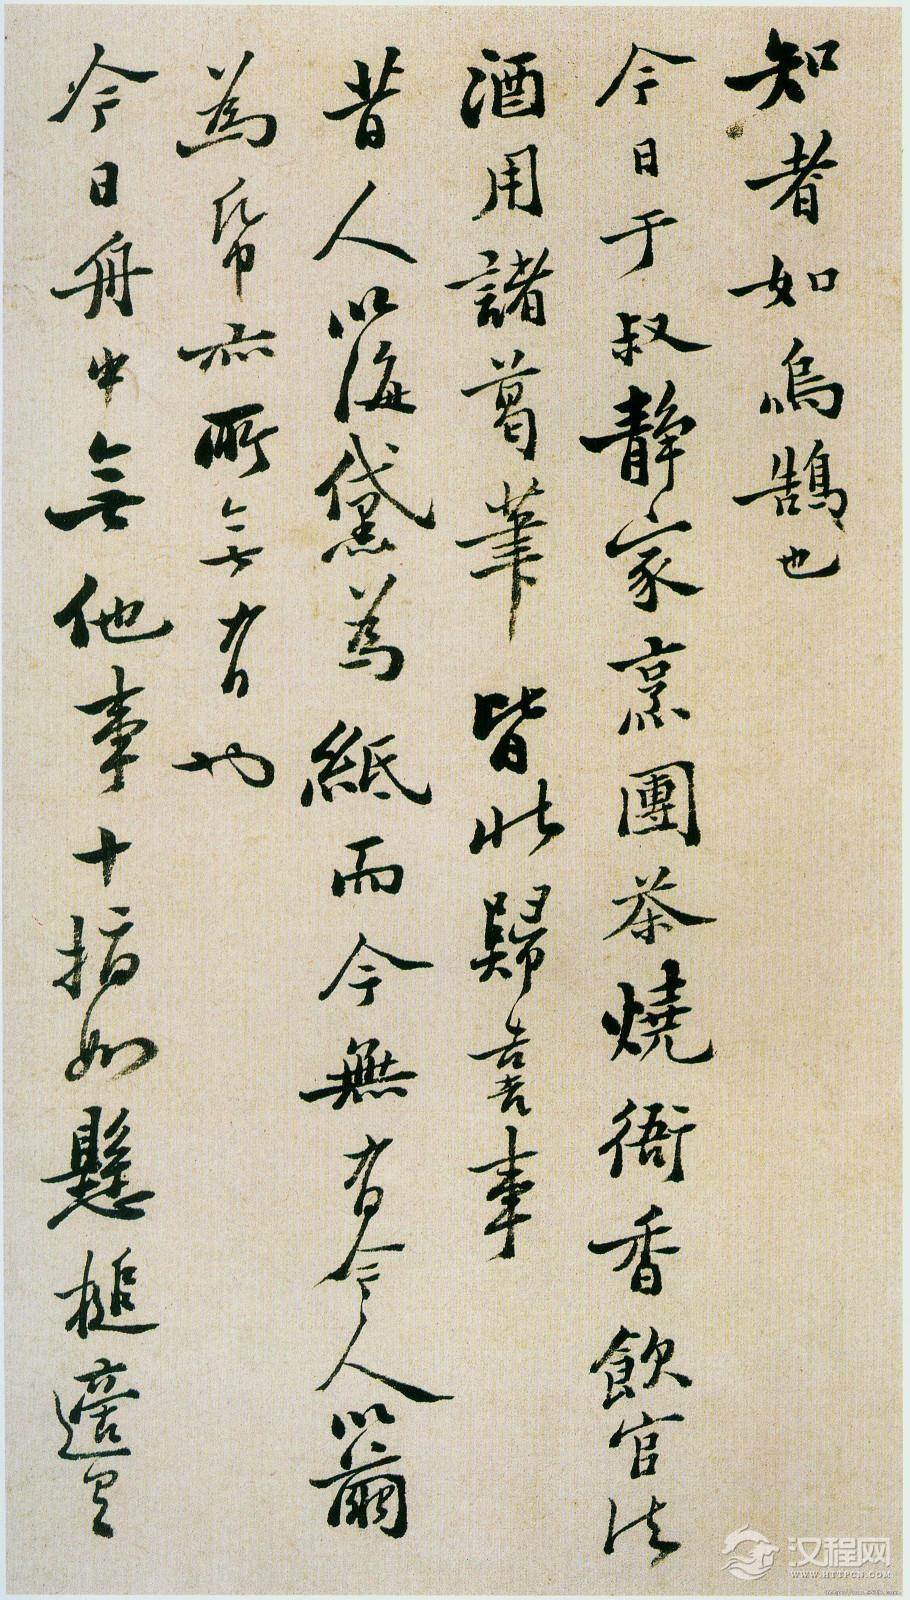 知者如烏鵲也
今日于叔靜家烹團茶燒衙香飲官法
酒用諸葛筆皆此歸喜事
昔人以海黛為紙而今無有今人以繭
為帋亦所無有也
今日舟中無他事十指如懸槌適
汉程网
WWW.HTTPCN.COM